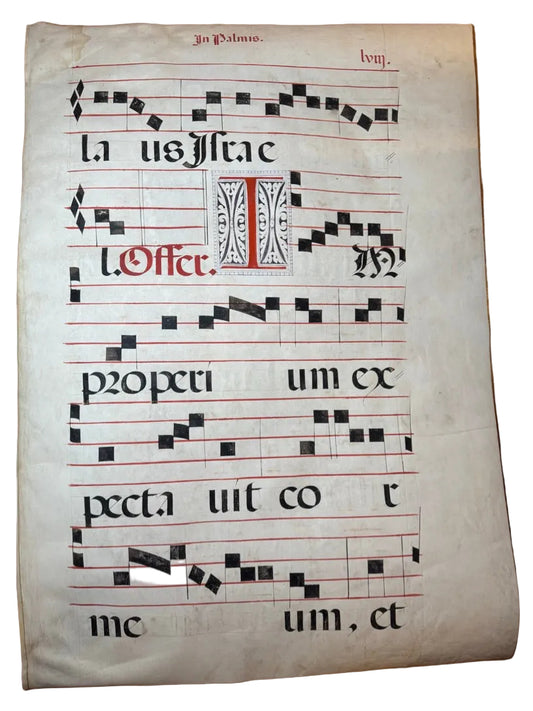 In Palmis.
lviij.
la us Israe
l. Offer. IM
properi um ex
pecta uit co r
me um, et